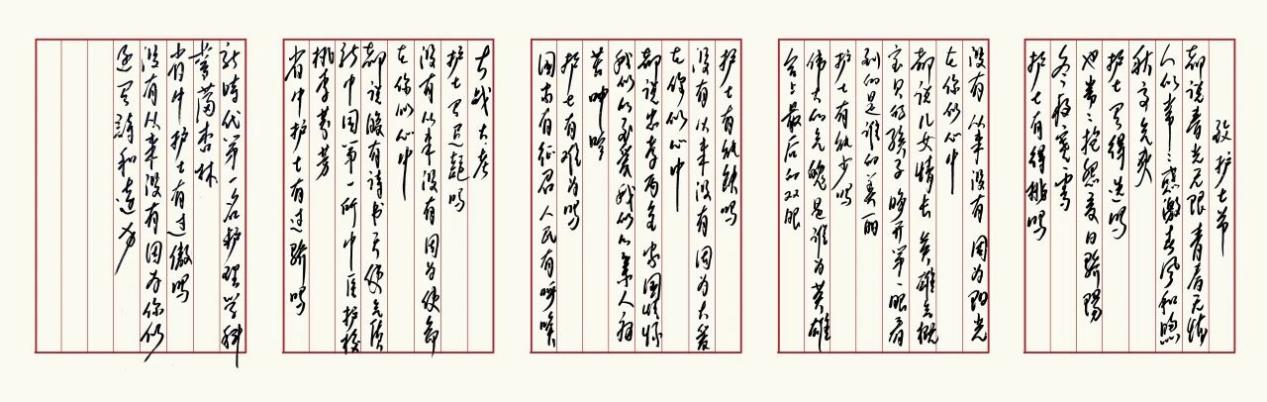 致护士节
都说春光无限 青春无悔
人们常常感激春风和煦
秋高气爽
护士可得选吗
也常常抱怨夏日骄阳
冬夜寒雪
护士有得挑吗
没有 从来没有 因为阳光
在你们心中
都说儿女情长 英雄气概
宝贝的孩子睁开第一眼看
到的是谁的美丽
护士有缺少吗
伟大的先魄是谁为英雄
合上最后的双眼
护士有缺憾吗
没有 从来没有 因为大爱
在你们心中
都说忠孝两全 家国情怀
我们的至爱我们的亲人在
苦呻吟
护士有难为吗
国家有征召 人民有呼唤
大战大考
护士可退缩吗
没有 从来没有 因为使命
在你们心中
都说腹有诗书 天使气质
新中国第一所中医护校
桃李芬芳
省中护士有过骄吗
新时代第一名护理学科
誉满杏林
省中护士有过傲吗
没有 从来没有 因为你们
还有诗和远方